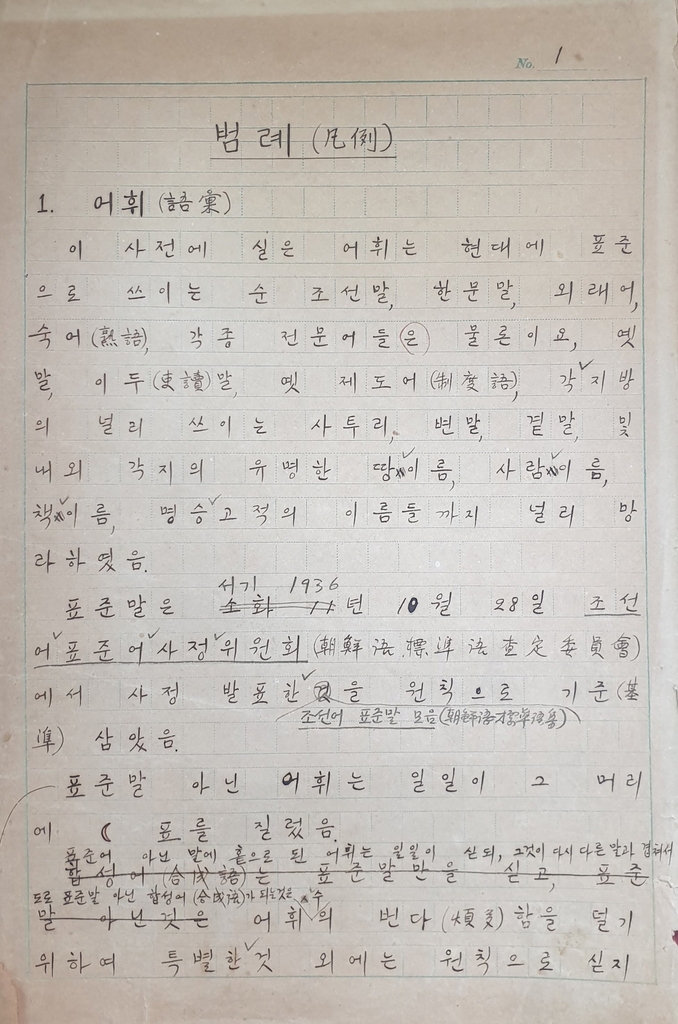 No. 1
범례 (凡例)
1. 어휘 (語彙)
이 사전에 실은 어휘는 현대에 표준
으로 쓰이는 순 조선말, 한문말, 외래어,
숙어(熟語), 각종 전문어들은 물론이요, 옛
말, 이두(吏讀)말, 옛 제도어(制度語), 각지방
의 널리 쓰이는 사투리, 변말, 곁말, 및
내외 각지의 유명한 땅이름, 사람이름,
책이름, 명승고적의 이름들까지 널리 망
라하였음.
서기 1936
표준말은 소화 11년 10월 28일 조선
어표준어사정위원회(朝鮮語標準語査定委員會)
에서 사정 발표한 을 원칙으로 기준(基
조선어 표준말 모음(朝鮮語標準語集)
準) 삼았음.
표준말 아닌 어휘는 일일이 그 머리
에 ( 표를 질렀음.
표준어 아닌 말에 홑으로 된 어휘는 일일이 싣되, 그것이 다시 다른말과 겹쳐서
합성어(合成語)는 표준말만을 싣고, 표준
도로 표준말 아닌 합성어(合成語)가 되는것은 수
말 아닌것은 어휘의 번다(煩多)함을 덜기
위하여 특별한것 외에는 원칙으로 싣지